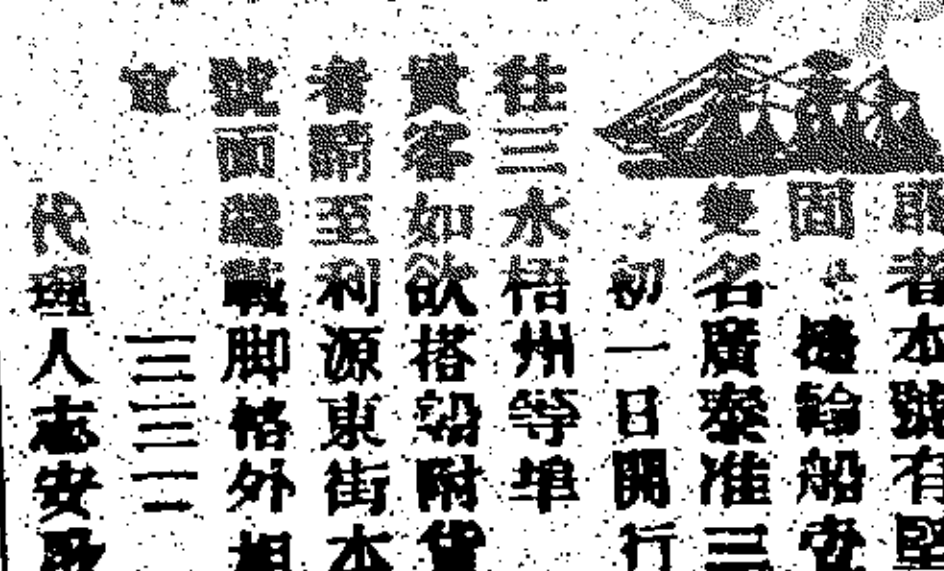 啟者本號有堅
面
隻名廣泰准三
初一日開行
往三水梧州等埠
貴客如欲搭附貨
者請至利源東街本
號面議載脚格外相
宜
三三二
代理人志安